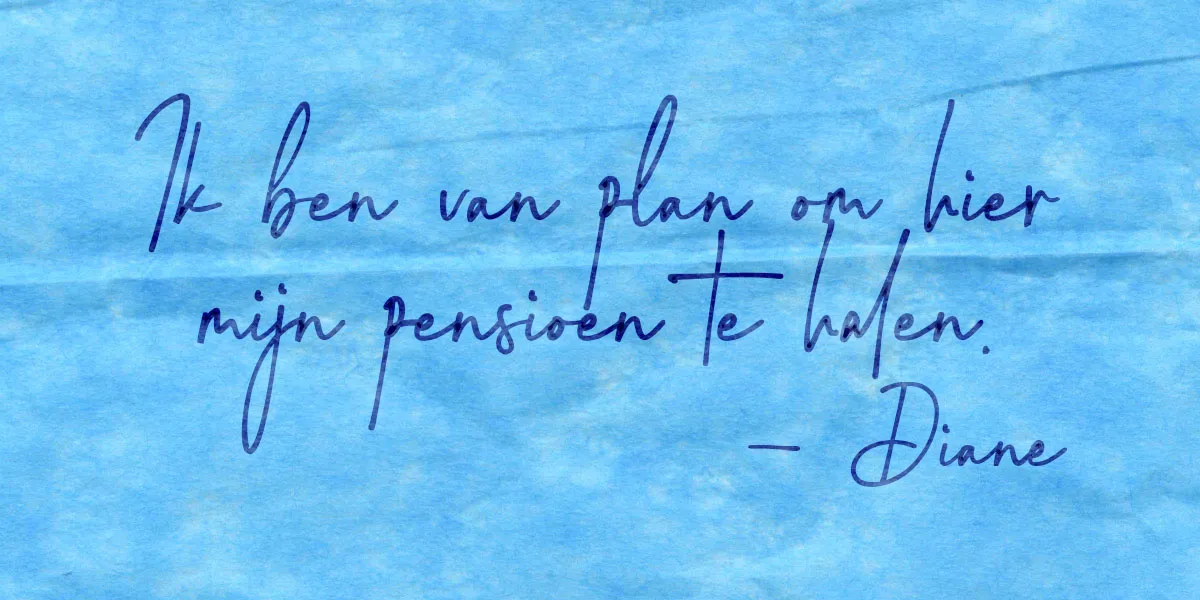 Ik ben van plan om hier
mijn pensioen te halen.
– Diane